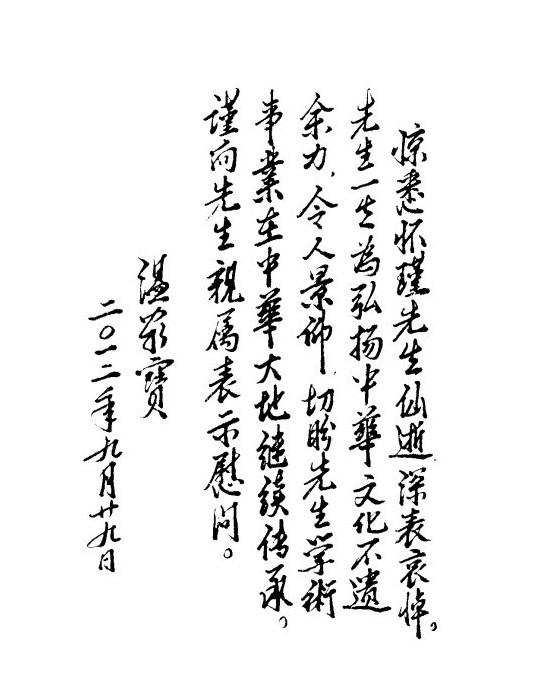 惊悉怀瑾先生仙逝，深表哀悼。
先生一生为弘扬中華文化不遗
余力，令人景仰，切盼先生学術
事業在中華大地继续传承。
谨向先生親属表示慰问。
温家寶
二〇一二年九月廿九日